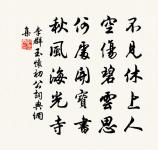 不見休上人
空傷碧雲思
何處開寶書
秋風海光寺
李群玉懷初公詞典網
集